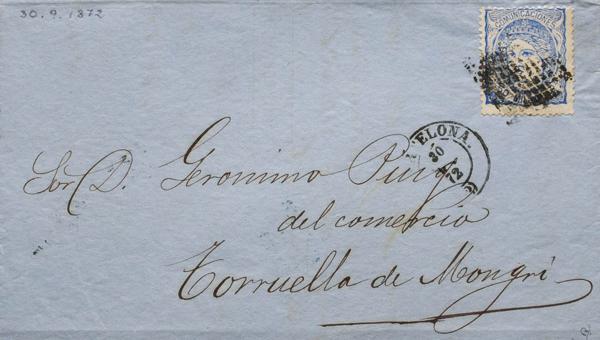 30.9.1872
COMUNICACIONES
ELONA.
30
72
Sor D. Geronimo Puig
del comercio
Torruella de Mongri